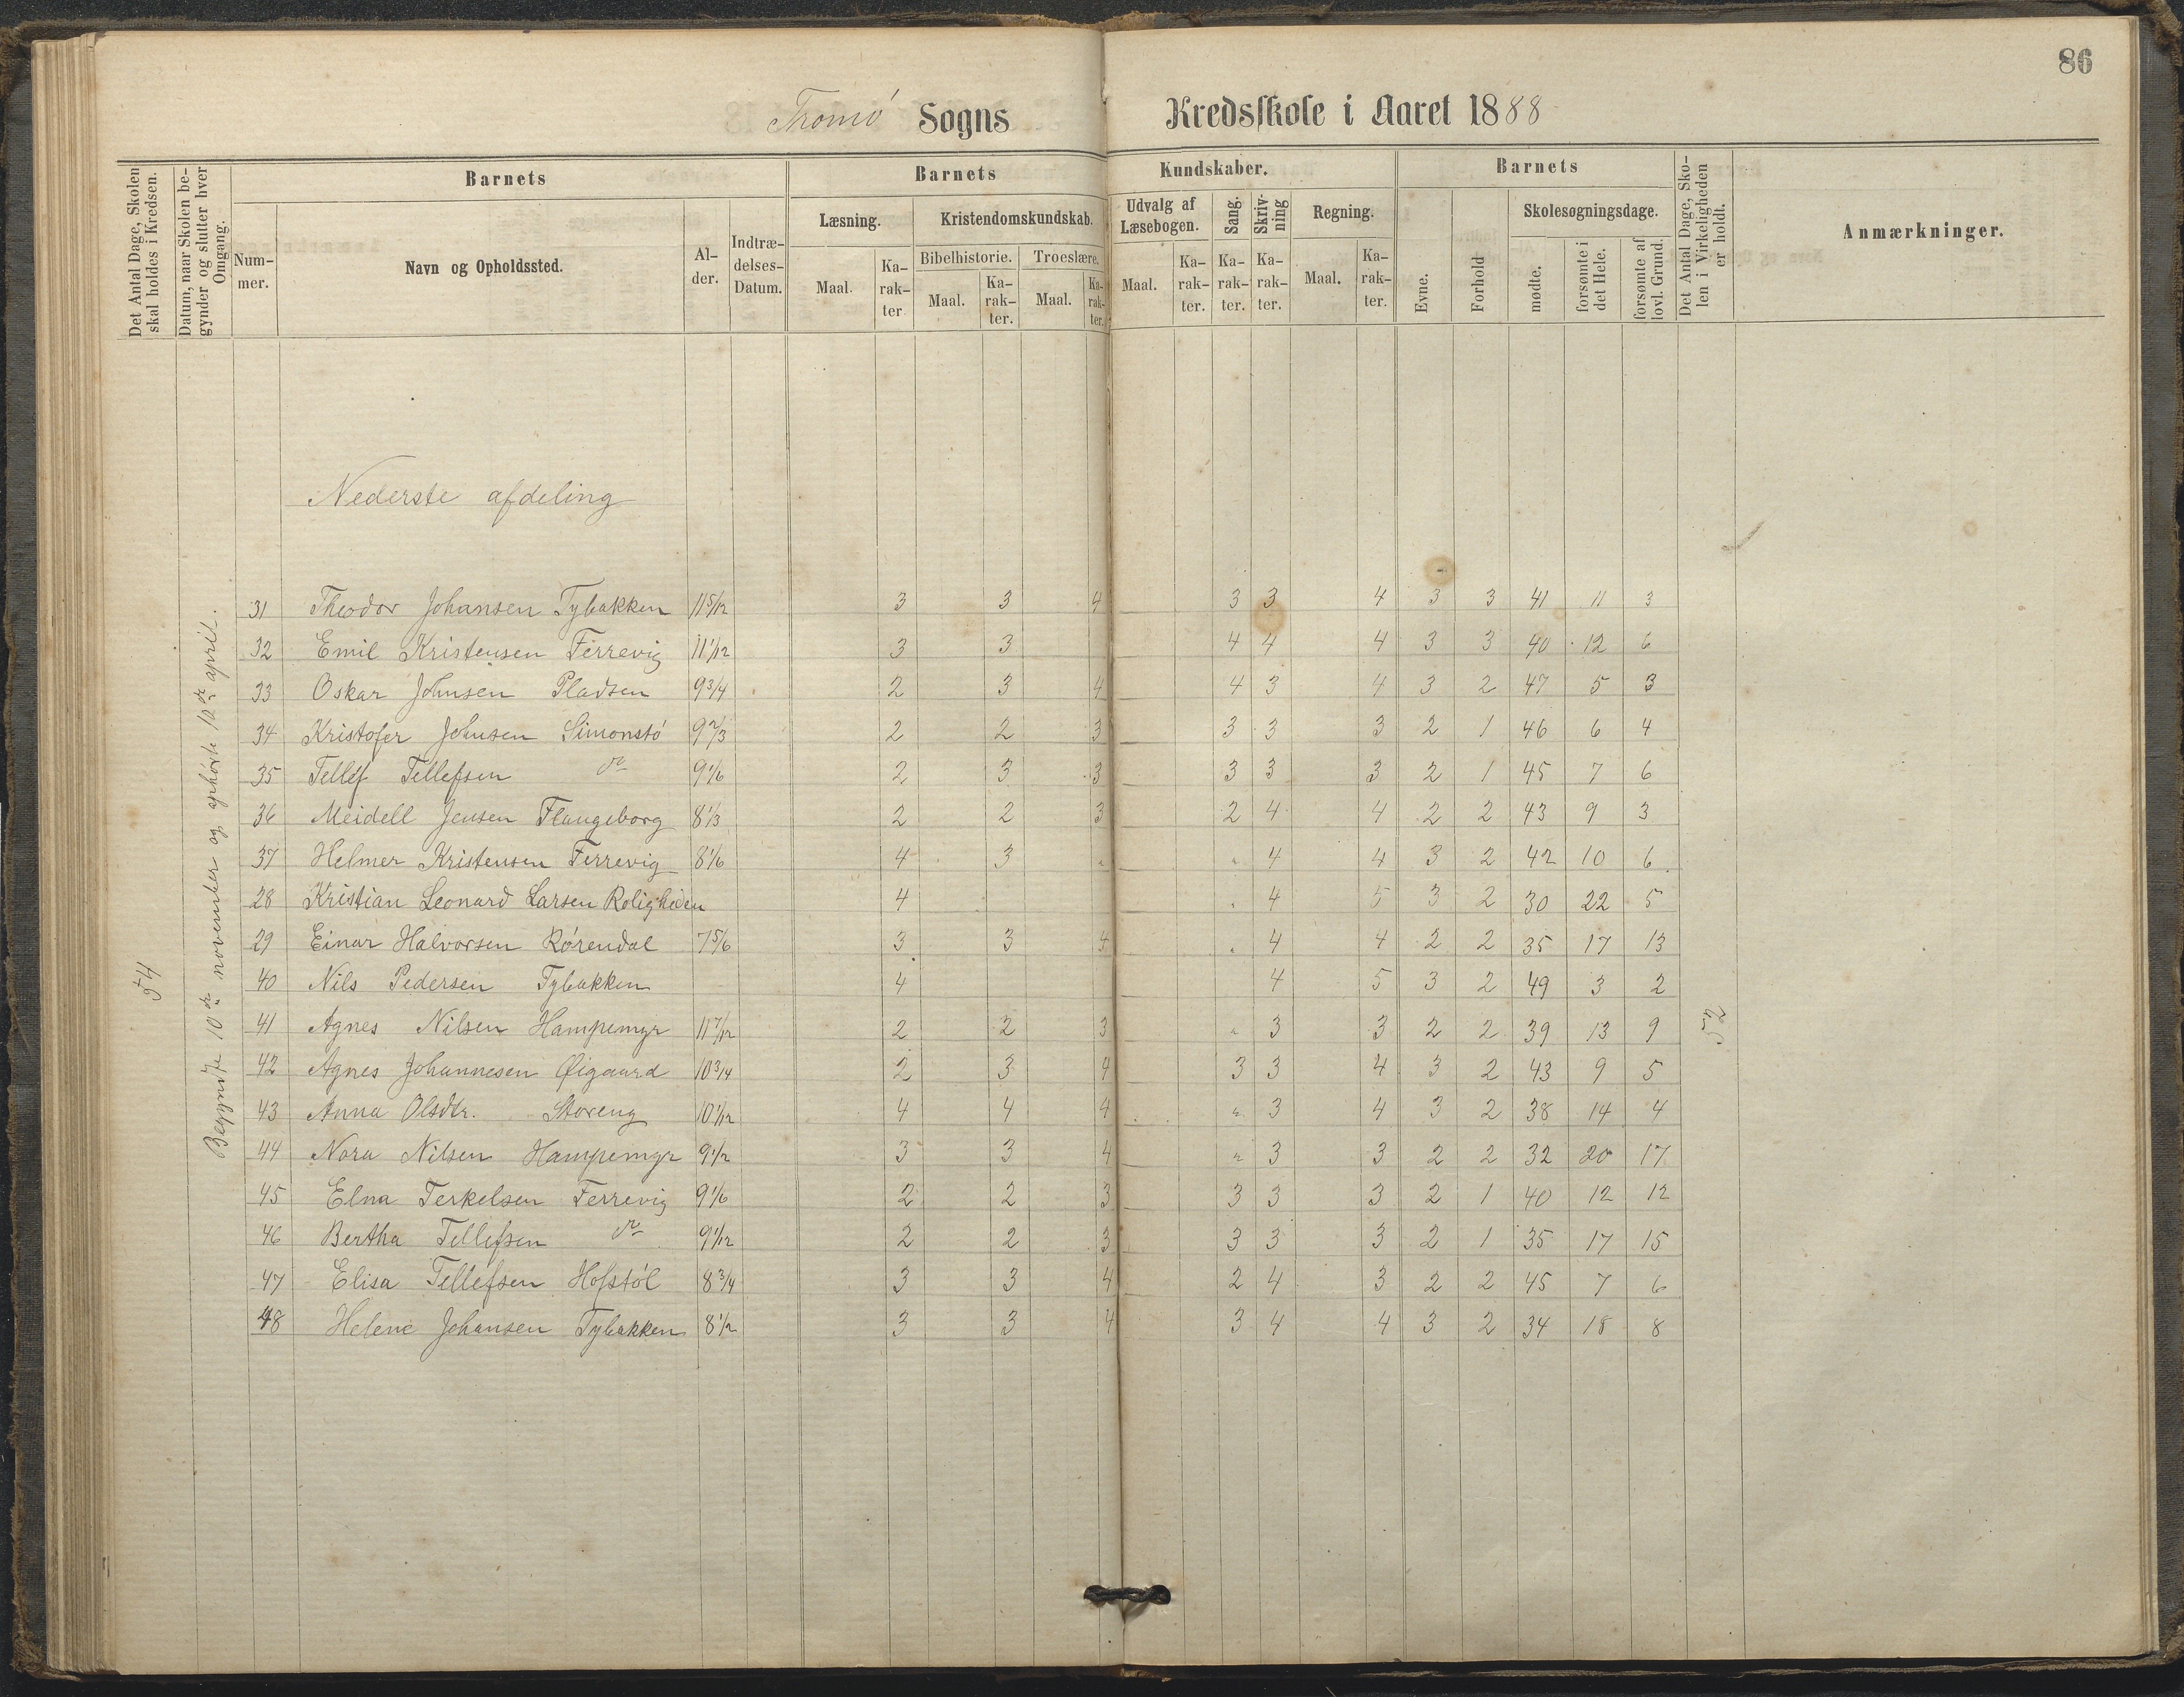 86
Tromö Sogns Kredsskole i Aaret 1888
Det Antal Dage, Skolen skal holdes i Kredsen.
Datum, naar Skolen begynder og slutter hver Omgang.
Barnets
Barnets Kundskaber.
Barnets
Det Antal Dage, Skolen i Virkeligheden er holdt.
Anmærkninger.
Nummer.
Navn og Opholdssted.
Alder.
Indtrædelses-Datum.
Læsning.
Kristendomskundskab.
Udvalg af Læsebogen.
Sang.
Skrivning
Regning.
Evne.
Forhold
Skolesøgningsdage.
Bibelhistorie.
Troeslære.
Maal. Karakter
Maal. Karakter.
Maal. Karakter.
Maal. Karakter.
Karakter.
Karakter.
Maal. Karakter.
mødte.
forsømte i det Hele.
forsømte af lovl. Grund.
54
Begyndte 10de november og ophørte 10de april.
52
Nederste afdeling
31 Theodor Johansen Tybakken 11 5/12 3 3 4 3 3 4 3 3 41 11 3
32 Emil Kristensen Ferrevig 11 1/12 3 3 4 4 4 3 3 40 12 6
33 Oskar Johnsen Pladsen 9 3/4 2 3 4 4 3 4 3 2 47 5 3
34 Kristofer Johnsen Simonstö 9 2/3 2 2 3 3 3 3 2 1 46 6 4
35 Tellef Tellefsen do 9 1/6 2 3 3 3 3 3 2 1 45 7 6
36 Meidell Jensen Flangeborg 8 1/3 2 2 3 2 4 4 2 2 43 9 3
37 Helmer Kristensen Ferrevig 8 1/6 4 3 " " 4 4 3 2 42 10 6
28 Kristian Leonard Larsen Roligheden 4 " 4 5 3 2 30 22 5
29 Einar Halvorsen Rörendal 7 5/6 3 3 4 " 4 4 2 2 35 17 13
40 Nils Pedersen Tybakken 4 4 5 3 2 49 3 2
41 Agnes Nilsen Hampemyr 11 7/12 2 2 3 " 3 3 2 2 39 13 9
42 Agnes Johannesen Øigaard 10 3/4 2 3 4 3 3 4 3 2 43 9 5
43 Anna Olsdtr. Storeng 10 1/12 4 4 4 " 3 4 3 2 38 14 4
44 Nora Nilsen Hampemyr 9 1/2 3 3 4 " 3 3 2 2 32 20 17
45 Elna Terkelsen Ferrevig 9 1/6 2 2 3 3 3 3 2 1 40 12 12
46 Bertha Tellefsen do 9 1/12 2 2 3 3 3 3 2 1 35 17 15
47 Elisa Tellefsen Hofstöl 8 3/4 3 3 4 2 4 3 2 2 45 7 6
48 Helene Johansen Tybakken 8 1/2 3 3 4 3 4 4 3 2 34 18 8